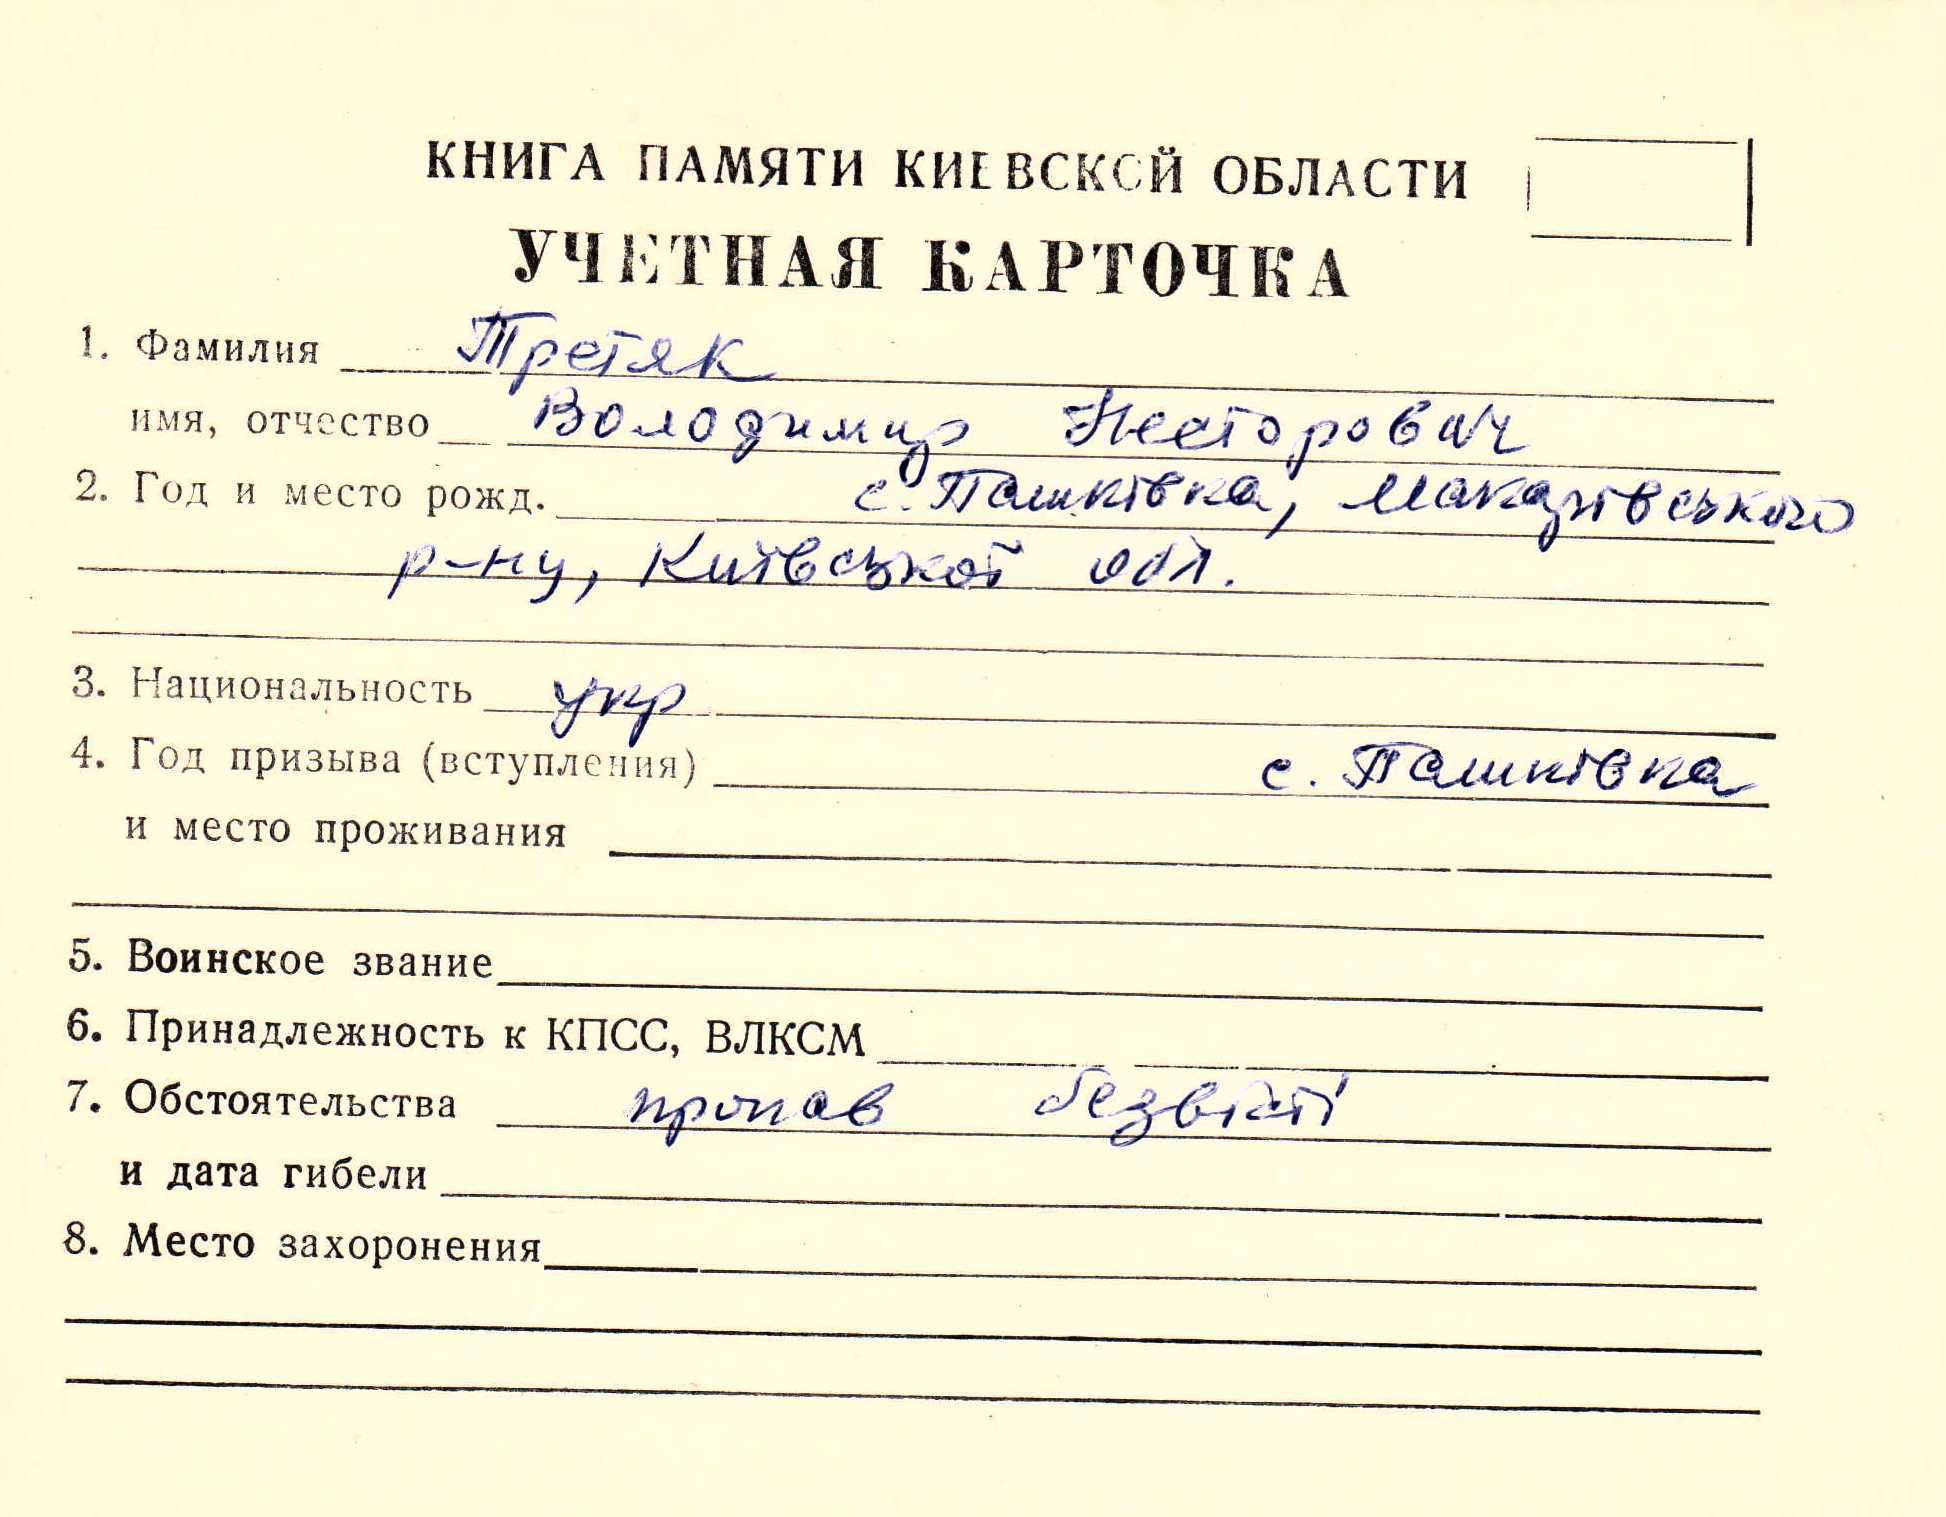 КНИГА ПАМЯТИ КИЕВСКОЙ ОБЛАСТИ
УЧЕТНАЯ КАРТОЧКА
1. Фамилия Третяк
имя, отчество Володимир Несторович
2. Год и место рожд. с. Пашківка, Макарівського
р-ну, Київської обл.
3. Национальность укр
4. Год призыва (вступления) с. Пашківка
и место проживания
5. Воинское звание
6. Принадлежность к КПСС, ВЛКСМ
7. Обстоятельства пропав безвісті
и дата гибели
8. Место захоронения